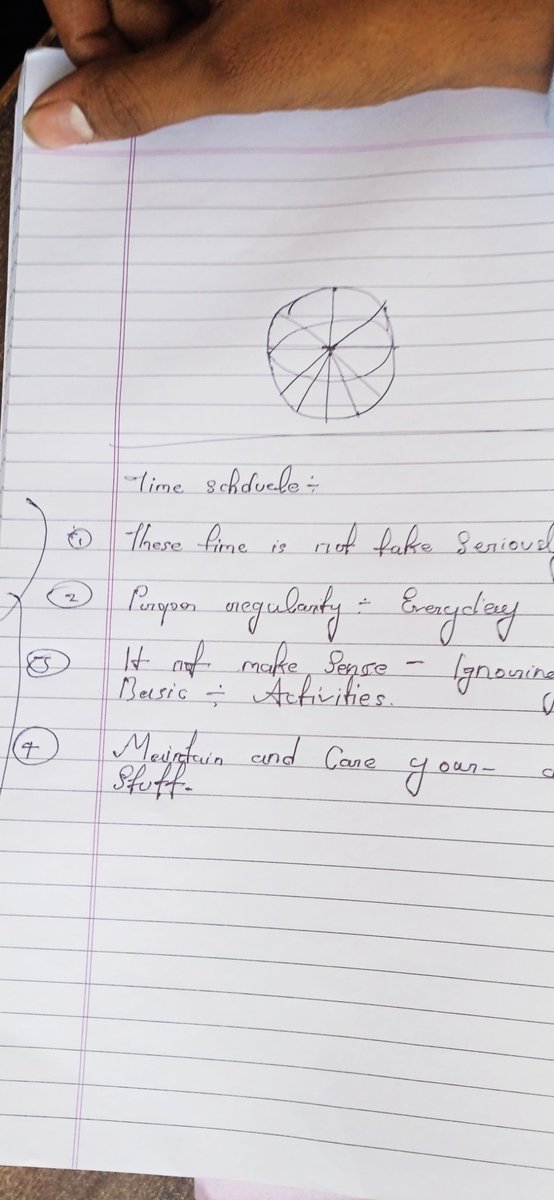 Time schduele ÷
1 These time is not take Seriously
2 regularity ÷ Everyday
3 It not make Sense - Ignoring
Basic ÷ Activities.
4 Maintain and Care your-
Stuff-